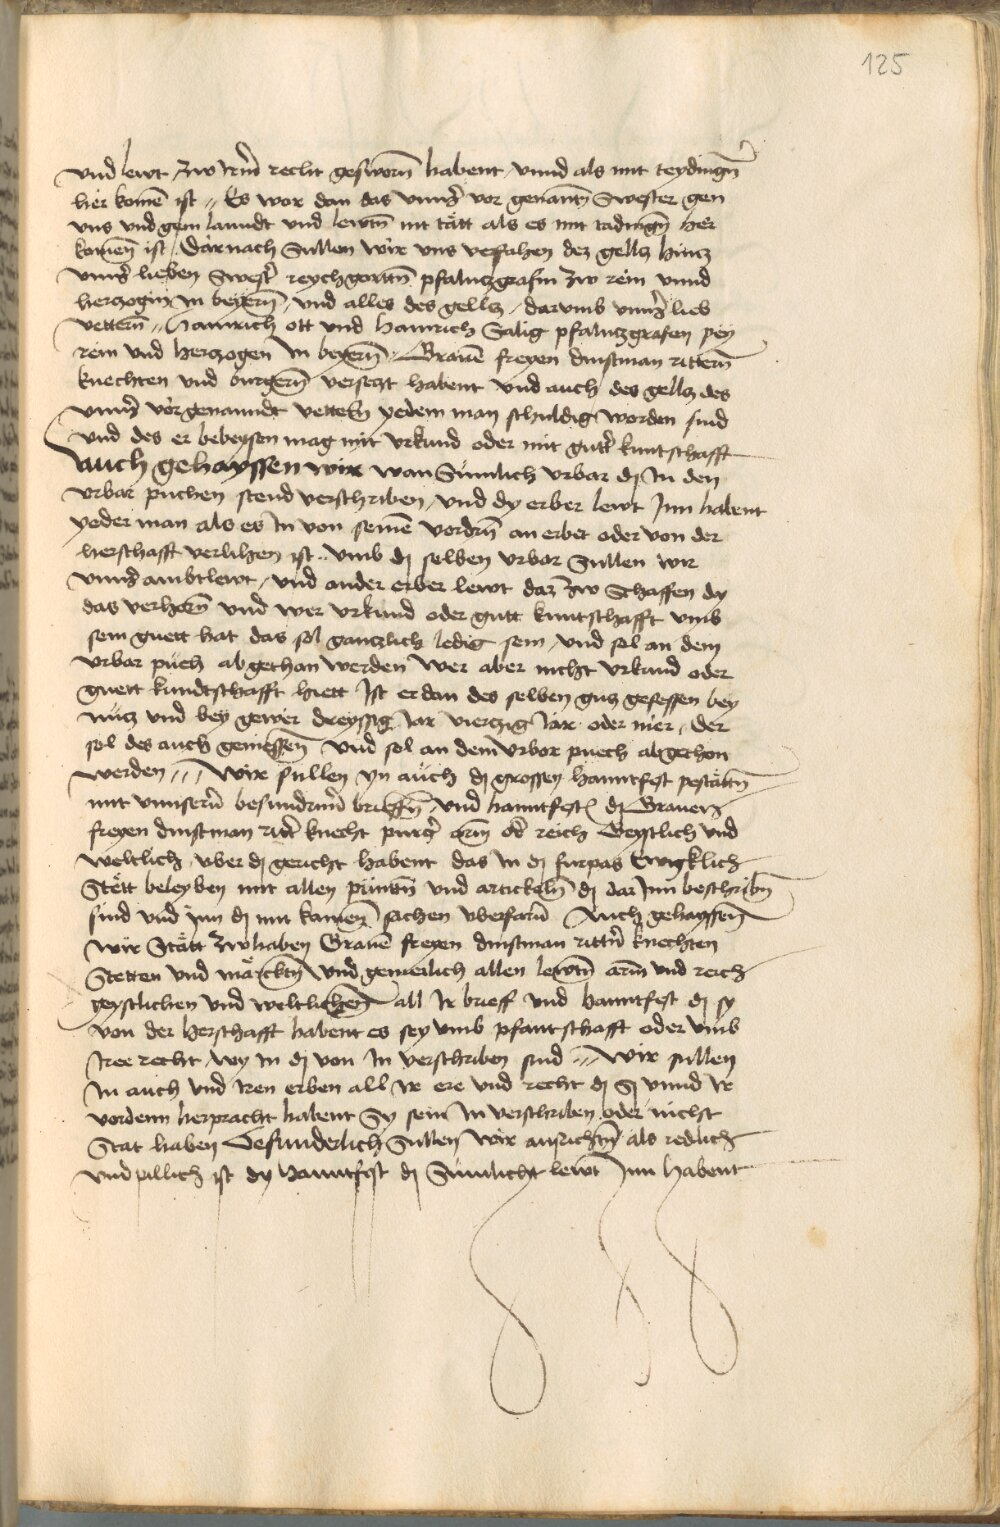 125
vnd lewt zw irm̄ recht geswornn̄ habent vnnd als mit teydingn̄
her komē ist Es wer dan das vnnsr̄ vor genantn̄ Swester gen
vns vnd gem lanndt vnd lewtn̄ nit tätt als es mit tadingn̄ her
komen̄ ist Darnach Sullen wir vns verfahen dez gelltz hincz
vnnsr̄ lieben Swestr̄ reychgartn̄ pfalntzgrafin zw rein vnnd
herczogin in beyern̄ vnd alles des gelltz darumb vnnsr̄ lieb
vettern̄ Hainrich ott vnd Hainrich Sälig pfalntzgrafen pey
rein vnd herczogen in beyern̄ Grauē freyen dinstman rittern̄
knechten vnd burgern̄ verseczt habent vnd auch des gelltz des
vnnsr̄ vorgenanndt vettern̄ yedem man schuldig worden sind
vnd des er beweysen mag mit vrkund oder mit gutr̄ kuntschafft
Auch gehayssen wir wan Sümlich vrbar dj in den
vrbar puchen stend verschriben vnd dy erber lewt Inn habent
yeder man als es in von seinē vordrn̄ an erbet oder von der
herschafft verlihen ist vmb dj selben vrbar Sullen wir
vnnsr̄ ambtlewt vnd ander erber lewt darzw Schaffen dy
das verhorn̄ vnd wer vrkund oder gutt kuntschafft vmb
sein guett hat das sol ganczlich ledig sein vnd sol an dem
vrbar püch abgethan werden wer aber nicht vrkund oder
guett kundtschafft hiett Ist er dan des selben gutz gesessen bey
nütz vnd bey gewer dreyssig Jar vierczig Jar oder mer der
sol des auch geniessen̄ vnd sol an dem vrbor puech abgethon
werden wir sullen yn auch dj grossen hanntfest pestättn̄
mit vnnserm̄ besundrm̄ brieffn̄ vnd hanntfest dj Grauen
freyen dinstman rittr̄ knecht purgr̄ arm od̄ reich Geystlich vnd
weltlich vber dj gericht habent das in dj furpas Ewigklich
Stëtt beleyben mit allen püntn̄ vnd artickeln̄ dj dar Inn beschribn̄
sind vnd Inn dj mit kainen̄ sachen vberfarn̄ Auch gehayssen̄
wir Stätt zw haben Grauē freyen dinstman rittrn̄ knechten
Stetten vnd märcktn̄ vnd gemeilich allen lewtn̄ arm vnd reich
geystlichen vnd weltlichen̄ all Ir brieff vnd hanntfest dj sy
von der herschafft habent es sey vmb pfantschafft oder vmb
Iree recht wy in dj von in verschriben sind wir sullen
in auch vnd iren erben all Ir ere vnd recht dj Sj vnnd Ir
vordenn herpracht habent Sy sein in verschriben oder nicht
Stat haben Besunderlich Sullen wir anrichtn̄ als redlich
vnd pillich ist dy hanntfest dj Sümlicht lewt Inn habent